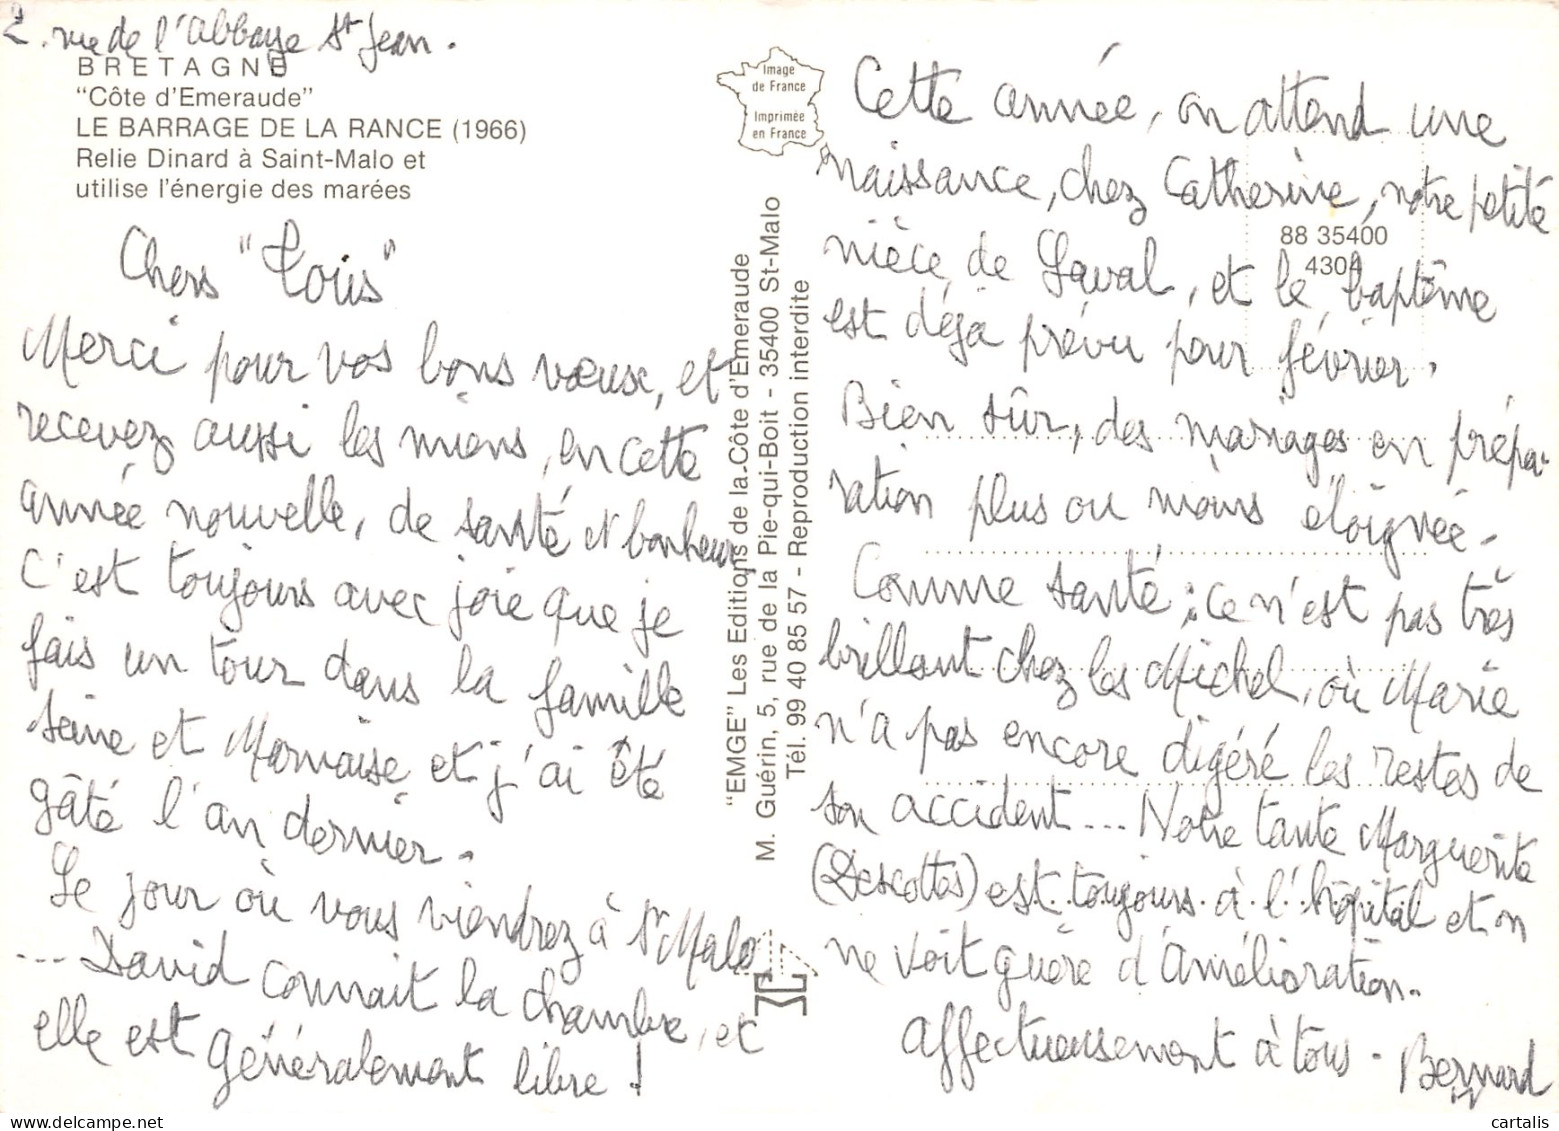 2. rue de l'Abbaye St Jean.
BRETAGNE
"Côte d'Emeraude"
LE BARRAGE DE LA RANCE (1966)
Relie Dinard à Saint-Malo et
utilise l'énergie des marées
Chers "Tous"
Merci pour vos bons vœux, et
recevez aussi les miens, en cette
année nouvelle, de santé et bonheur,
C'est toujours avec joie que je
fais un tour dans la famille
Seine et Marnaise et j'ai été
gâté l'an dernier.
Le jour où vous viendrez à St Malo
... David connait la chambre, et
elle est généralement libre !
"EMGE" Les Editions de la Côte d'Emeraude
M. Guérin, 5, rue de la Pie-qui-Boit - 35400 St-Malo
Tél. 99 40 85 57 - Reproduction interdite
Image
de France
Imprimée
en France
88 35400
4304
Cette année, on attend une
naissance, chez Catherine, notre petite
nièce de Laval, et le baptême
est déja prévu pour février.
Bien sûr, des mariages en prépa-
ration plus ou moins éloignée.
Comme santé, ce n'est pas très
brillant chez les Michel, où Marie
n'a pas encore digéré les restes de
son accident... Notre tante Marguerite
(Descottes) est toujours à l'hôpital et on
ne voit guère d'amélioration.
Affectueusement à tous. Bernard
cartalis